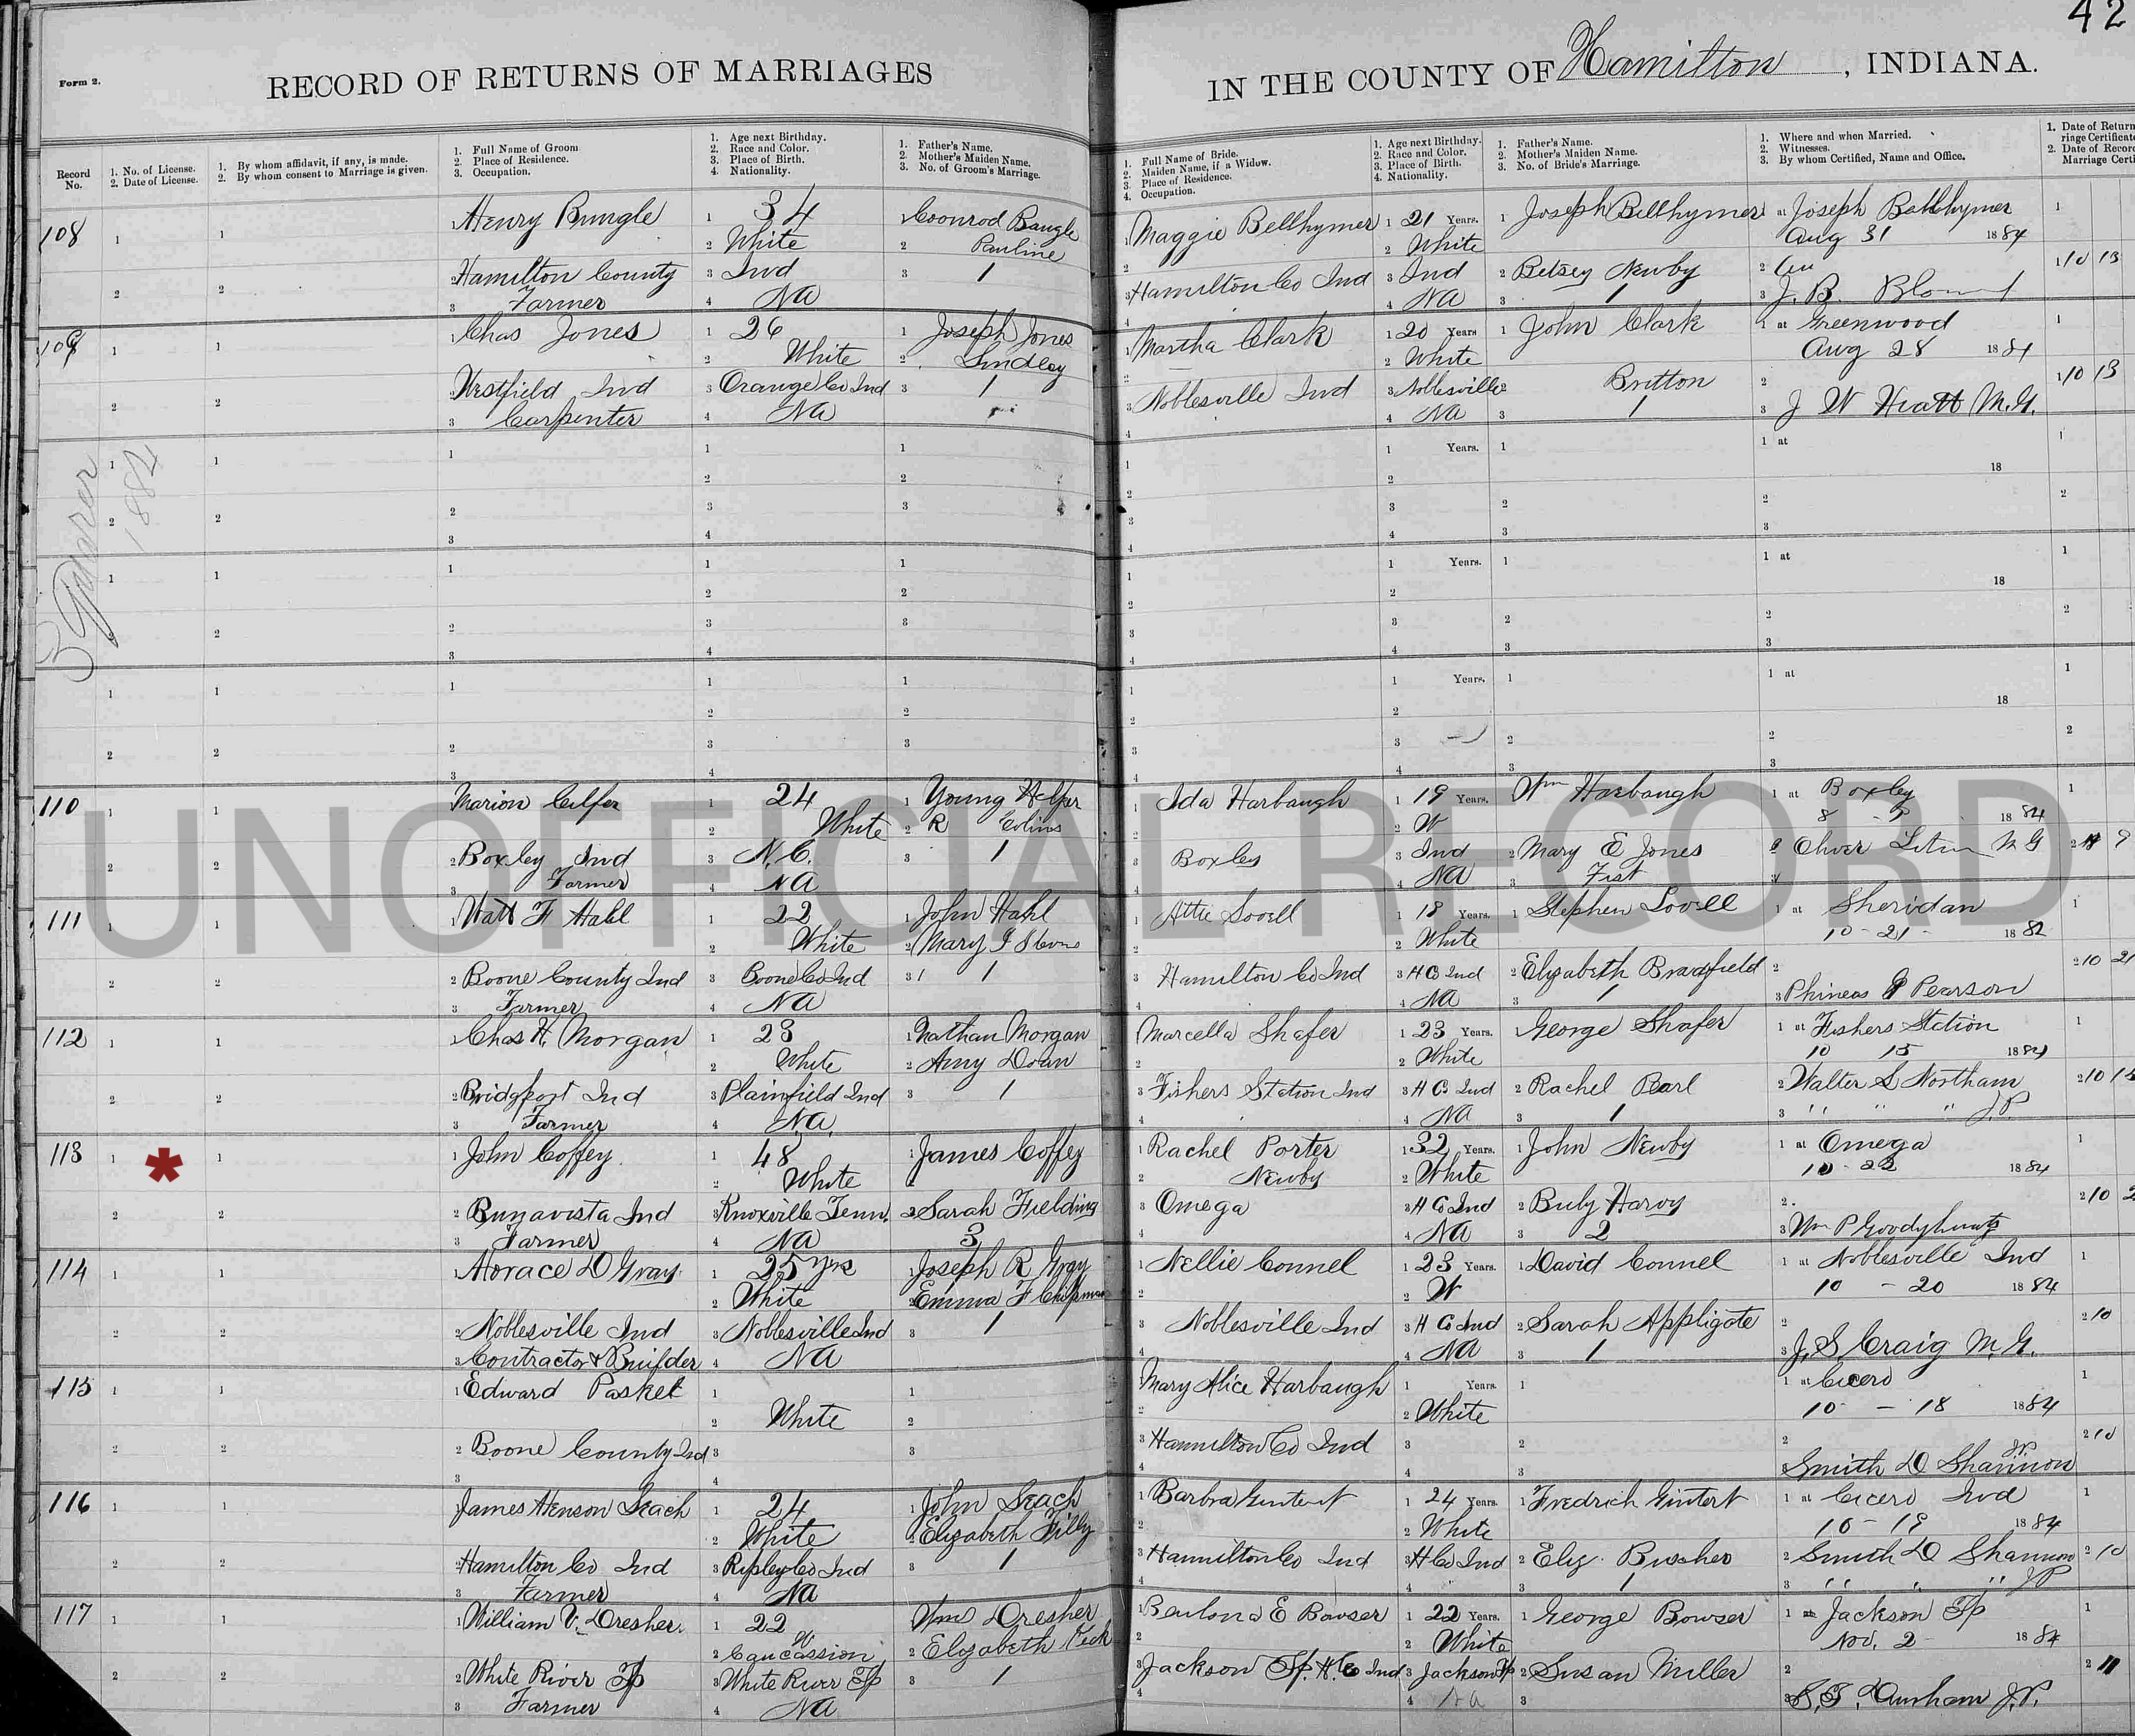 42
Form 2.
RECORD OF RETURNS OF MARRIAGES IN THE COUNTY OF Hamilton, INDIANA.
Record No.
1. No. of License.
2. Date of License.
1. By whom affidavit, if any, is made.
2. By whom consent to Marriage is given.
1. Full Name of Groom
2. Place of Residence.
3. Occupation.
1. Age next Birthday.
2. Race and Color.
3. Place of Birth.
4. Nationality.
1. Father's Name.
2. Mother's Maiden Name.
3. No. of Groom's Marriage.
1. Full Name of Bride.
2. Maiden Name, if a Widow.
3. Place of Residence.
4. Occupation.
1. Age next Birthday.
2. Race and Color.
3. Place of Birth.
4. Nationality.
1. Father's Name.
2. Mother's Maiden Name.
3. No. of Bride's Marriage.
1. Where and when Married.
2. Witnesses.
3. By whom Certified, Name and Office.
1. Date of Return
riage Certificate
2. Date of Record
Marriage Certi
108
Henry Bungle
Hamilton County
Farmer
34
White
Ind
NA
Coonrod Bangle
Pauline
1
Maggie Bellhymer
Hamilton Co Ind
21 Years.
White
Ind
NA
Joseph Bellhymer
Betsey Newby
1
at Joseph Bellhymer
Aug 31 1884
J. B.
10 13
109
Chas Jones
Westfield Ind
Carpenter
26
White
Orange Co Ind
NA
Joseph Jones
Lindley
1
Martha Clark
Noblesville Ind
20 Years
White
Noblesville
NA
John Clark
Britton
1
at Greenwood
Aug 28 1884
J W Hiatt M.G.
10 13
1882
Years.
at
18
Years.
at
18
Years.
at
18
110
Marion Cilfer
Boxley Ind
Farmer
24
White
N.C.
NA
Young
R Colins
1
Ida Harbaugh
Boxley
19 Years.
W
Ind
NA
Wm Harbaugh
Mary E Jones
First
at Boxley
1884
Oliver M G
9
111
Watt F Hall
Boone County Ind
Farmer
22
White
Boone Co Ind
NA
John Hahl
Mary J Stevens
1
Attie Lovell
Hamilton Co Ind
18 Years.
White
H Co Ind
NA
Stephen Lovell
Elizabeth Bradfield
1
at Sheridan
10-21- 1882
Phineas G Pearson
10 21
112
Chas H. Morgan
Bridgport Ind
Farmer
23
White
Plainfield Ind
NA
Nathan Morgan
Amy Doan
1
Marcella Shafer
Fishers Station Ind
23 Years.
White
H Co Ind
NA
George Shafer
Rachel Pearl
1
at Fishers Station
10 15 1884
Walter S Northam
" " " J.P.
10 15
113
*
John Coffey
Bunavista Ind
Farmer
48
White
Knoxville Tenn.
NA
James Coffey
Sarah Fielding
3
Rachel Porter
Newby
Omega
32 Years.
White
H Co Ind
NA
John Newby
Buly Harvy
2
at Omega
10-22 1884
Wm P Goodykuntz
10 2
114
Horace D Gray
Noblesville Ind
Contractor & Builder
25 yrs
White
Noblesville Ind
NA
Joseph R Gray
Emma F Chipman
1
Nellie Connel
Noblesville Ind
23 Years.
W
H Co Ind
NA
David Connel
Sarah Appligate
1
at Noblesville Ind
10 - 20 1884
J. S Craig M. G.
10
115
Edward Pasket
Boone County Ind
White
Mary Alice Harbaugh
Hamilton Co Ind
Years.
White
at Cicero
10 - 18 1884
Smith D Shannon JP
10
116
James Henson Leach
Hamilton Co Ind
Farmer
24
White
Ripley Co Ind
NA
John Leach
Elizabeth Filly
1
Barbra Gintert
Hamilton Co Ind
24 Years.
White
H Co Ind
Fredrich Gintert
Eliz. Buscher
1
at Cicero Ind
10-19 1884
Smith D Shannon
" " " JP
10
117
William V. Dresher.
White River Tp
Farmer
22
W.
Caucassion
White River Tp
NA
Wm Dresher
Elizabeth Peck
1
E Bowser
Jackson Tp. H. Co Ind
22 Years.
White
Jackson Tp
NA
George Bowser
Susan Miller
at Jackson Tp
Nov. 2 1884
Dunham J.P.
11
UNOFFICIAL RECORD